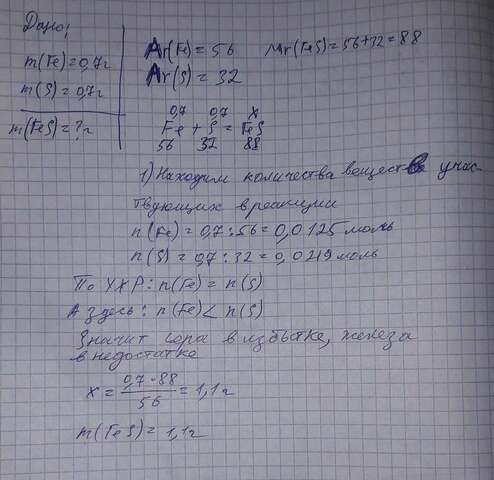 Дано:
m(Fe)=0,7г
m(S)=0,7г
m(FeS)=?г
Ar(Fe)=56 Mr(FeS)=56+32=88
Ar(S)=32
0,7 0,7 x
Fe + S = FeS
56 32 88
1) Находим количества веществ учас-
твующих в реакции
n(Fe)=0,7:56=0,0125моль
n(S)=0,7:32=0,0219моль
По УХР: n(Fe)=n(S)
А здесь: n(Fe)<n(S)
Значит сера в избытке, железа
в недостатке
x = 0,7·88 = 1,1г
56
m(FeS)=1,1г